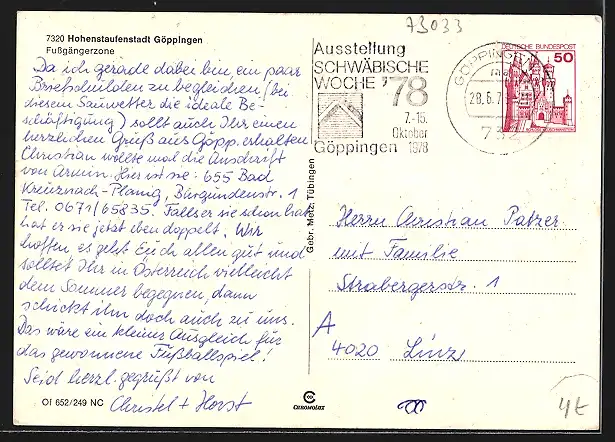 73033
7320 Hohenstaufenstadt Göppingen
Fußgängerzone
Da ich gerade dabei bin, ein paar
Briefschulden zu begleichen (bei
diesem Sauwetter die ideale Be-
schäftigung) sollt auch Ihr einen
herzlichen Gruß aus Göpp. erhalten
Christian wollte mal die Anschrift
von Armin. Hier ist sie: 655 Bad
Kreuznach-Planig, Burgundenstr. 1
Tel. 0671/65835. Falls er sie schon hat
hat er sie jetzt eben doppelt. Wir
hoffen es geht Euch allen gut und
solltet Ihr in Österreich vielleicht
dem Sommer begegnen, dann
schickt ihn doch auch zu uns.
Das wäre ein kleiner Ausgleich für
das gewonnene Fußballspiel!
Seid herzl. gegrüßt von
Christel + Horst
OI 652/249 NC
Gebr. Metz, Tübingen
CHROMOLUX
Ausstellung
SCHWÄBISCHE
WOCHE '78
7.-15.
Oktober
1978
Göppingen
GÖPPINGEN
28.6.7
732
DEUTSCHE BUNDESPOST
50
Herrn Christian Patzer
mit Familie
Strabergerstr. 1
A
4020 Linz
4t